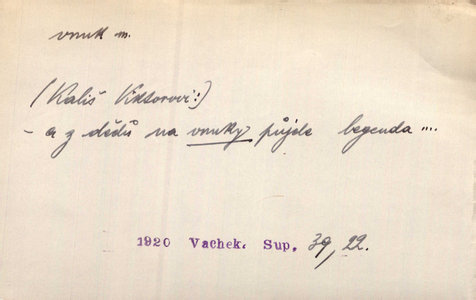 vnuk m.
(Kališ Viktorovi:)
– a z dědů na vnuky půjde legenda ....
1920 Vachek. Sup. 39, 22.